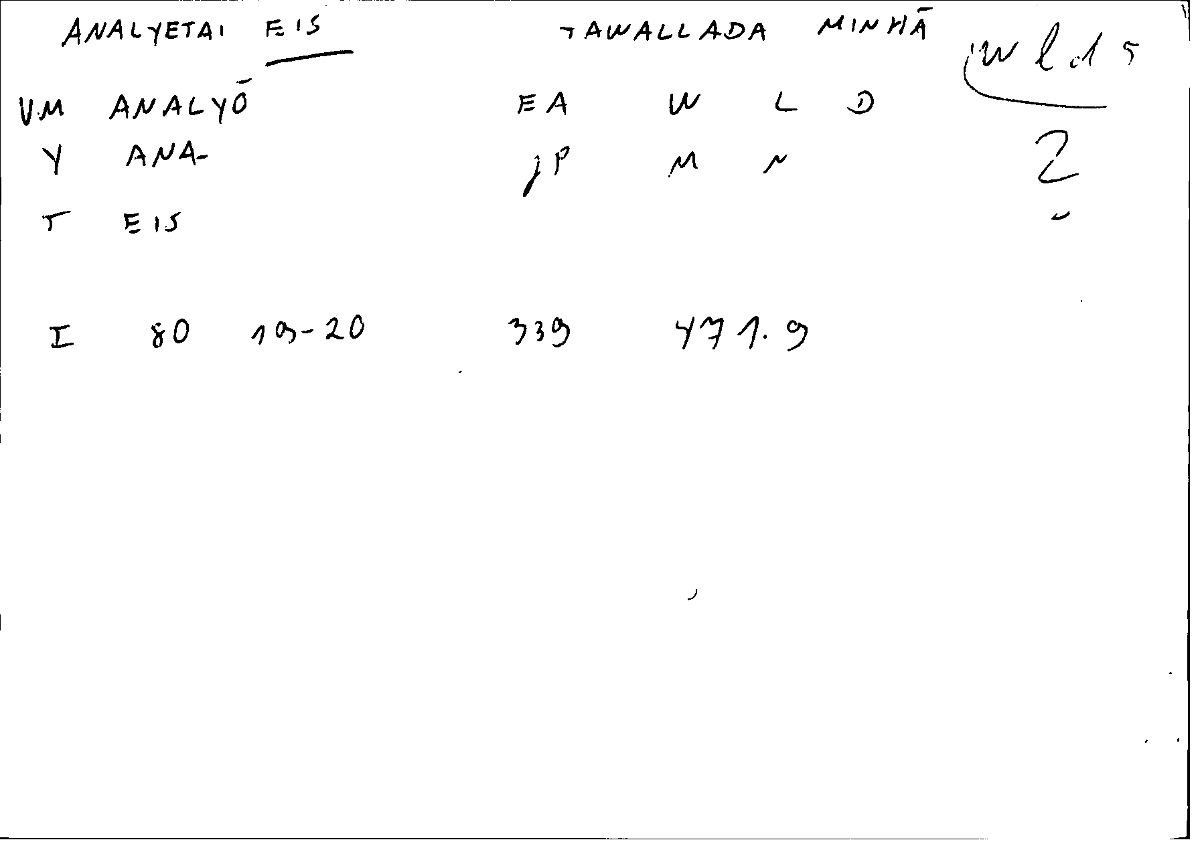 ANALYETAI EIS TAWALLADA MINHĀ wld 5
VM ANALYŌ EA W L D
Y ANA- jP M N 2
T EIS
I 80 19-20 339 471.9